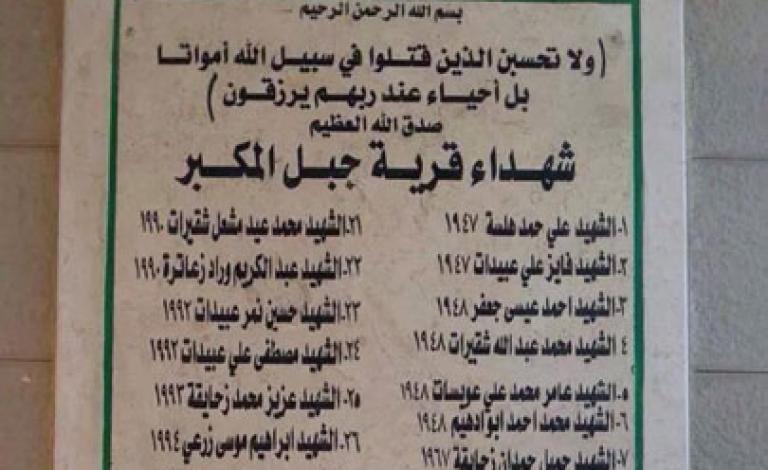 بسم الله الرحمن الرحيم
(ولا تحسبن الذين قتلوا في سبيل الله أمواتا
بل أحياء عند ربهم يرزقون)
صدق الله العظيم
شهداء قرية جبل المكبر
١-الشهيد علي حمد هلسة ١٩٤٧
٢-الشهيد فايز علي عبيدات ١٩٤٧
٣-الشهيد احمد عيسى جعفر ١٩٤٨
٤ الشهيد محمد عبد الله شقيرات ١٩٤٨
٥-الشهيد عامر محمد علي عويسات ١٩٤٨
٦-الشهيد محمد احمد ابو ادهيم ١٩٤٨
٧-الشهيد جميل حمدان زحايقة ١٩٦٧
٢١-الشهيد محمد عيد مشعل شقيرات ١٩٩٠
٢٢-الشهيد عبد الكريم وراد زعاترة ١٩٩٠
٢٣-الشهيد حسين نمر عبيدات ١٩٩٢
٢٤-الشهيد مصطفى علي عبيدات ١٩٩٢
٢٥-الشهيد عزيز محمد زحايقة ١٩٩٣
٢٦-الشهيد ابراهيم موسى زرعي ١٩٩٤